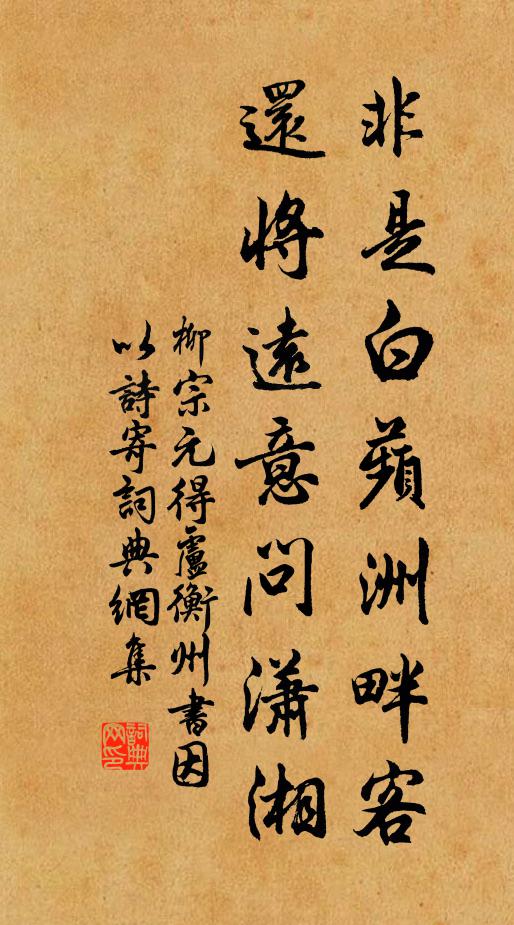 非是白蘋洲畔客
還將遠意問瀟湘
柳宗元得盧衡州書因
以詩寄詞典網集
詞典
网印